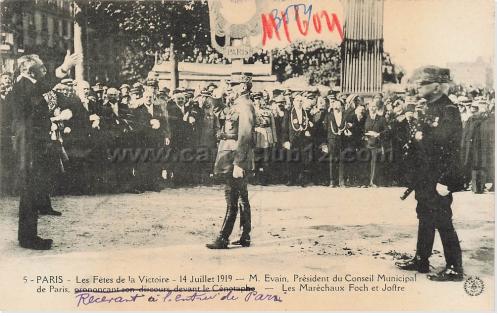 BOTY
MYON
PARIS
cartesclub112.com
5 - PARIS - Les Fêtes de la Victoire - 14 Juillet 1919 — M. Evain, Président du Conseil Municipal
de Paris, prononçant son discours devant le Cénotaphe — Les Maréchaux Foch et Joffre
Recevant à l'entrée de Paris